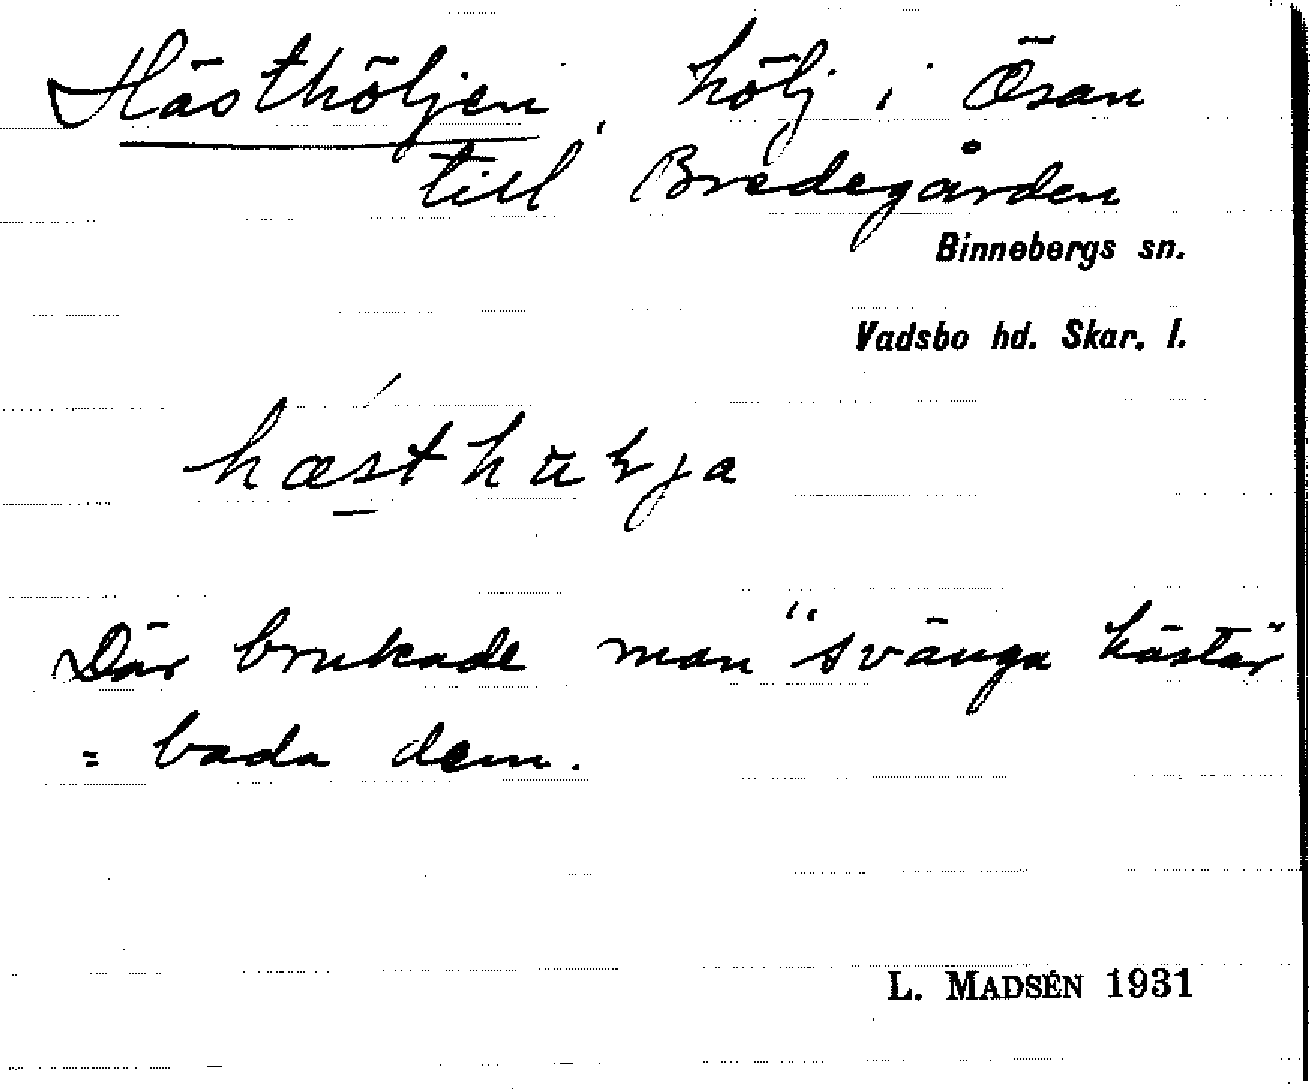 Hästhöljen, hölj i Ösan
till Bredegården
Binnebergs sn.
Vadsbo hd. Skar. l.
Där brukade man "svänga hästär"
= bada dem.
L. MADSÉN 1931